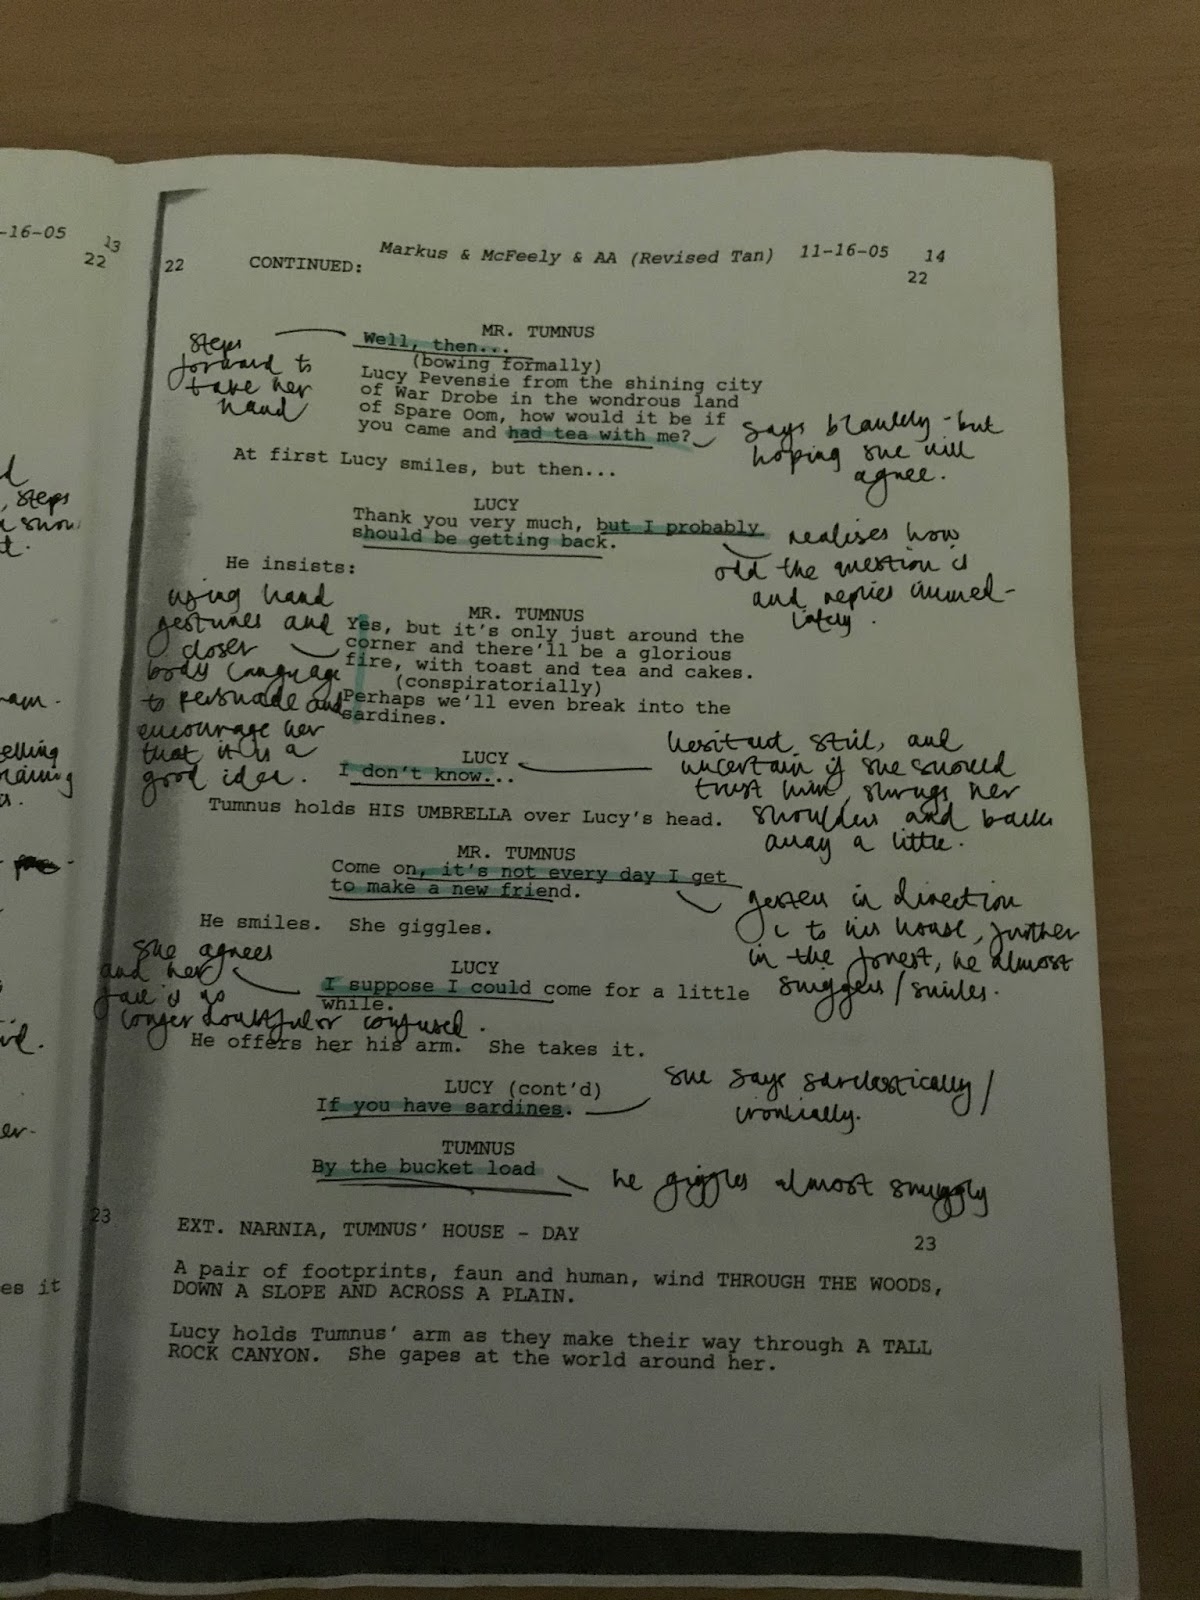 -16-05 13
22
Markus & McFeely & AA (Revised Tan) 11-16-05 14
22 CONTINUED: 22
MR. TUMNUS
Well, then...
(bowing formally)
Lucy Pevensie from the shining city
of War Drobe in the wondrous land
of Spare Oom, how would it be if
you came and had tea with me?
steps
forward to
take her
hand
says blankly - but
hoping she will
agree.
At first Lucy smiles, but then...
LUCY
Thank you very much, but I probably
should be getting back.
realises how
odd the question is
and replies immed-
iately.
He insists:
MR. TUMNUS
Yes, but it's only just around the
corner and there'll be a glorious
fire, with toast and tea and cakes.
(conspiratorially)
Perhaps we'll even break into the
sardines.
using hand
gestures and
closer
body language
to persuade and
encourage her
that it is a
good idea.
LUCY
I don't know...
hesitant still, and
uncertain if she should
trust him, shrugs her
shoulders and backs
away a little.
Tumnus holds HIS UMBRELLA over Lucy's head.
MR. TUMNUS
Come on, it's not every day I get
to make a new friend.
in direction
to his house, further
in the forest, he almost
sniggers / smiles.
He smiles. She giggles.
LUCY
I suppose I could come for a little
while.
she agrees
and her
face is no
longer doubtful or confused.
He offers her his arm. She takes it.
LUCY (cont'd)
If you have sardines.
she says sarcastically /
ironically.
TUMNUS
By the bucket load
he giggles almost smuggly
23 EXT. NARNIA, TUMNUS' HOUSE - DAY 23
A pair of footprints, faun and human, wind THROUGH THE WOODS,
DOWN A SLOPE AND ACROSS A PLAIN.
Lucy holds Tumnus' arm as they make their way through A TALL
ROCK CANYON. She gapes at the world around her.